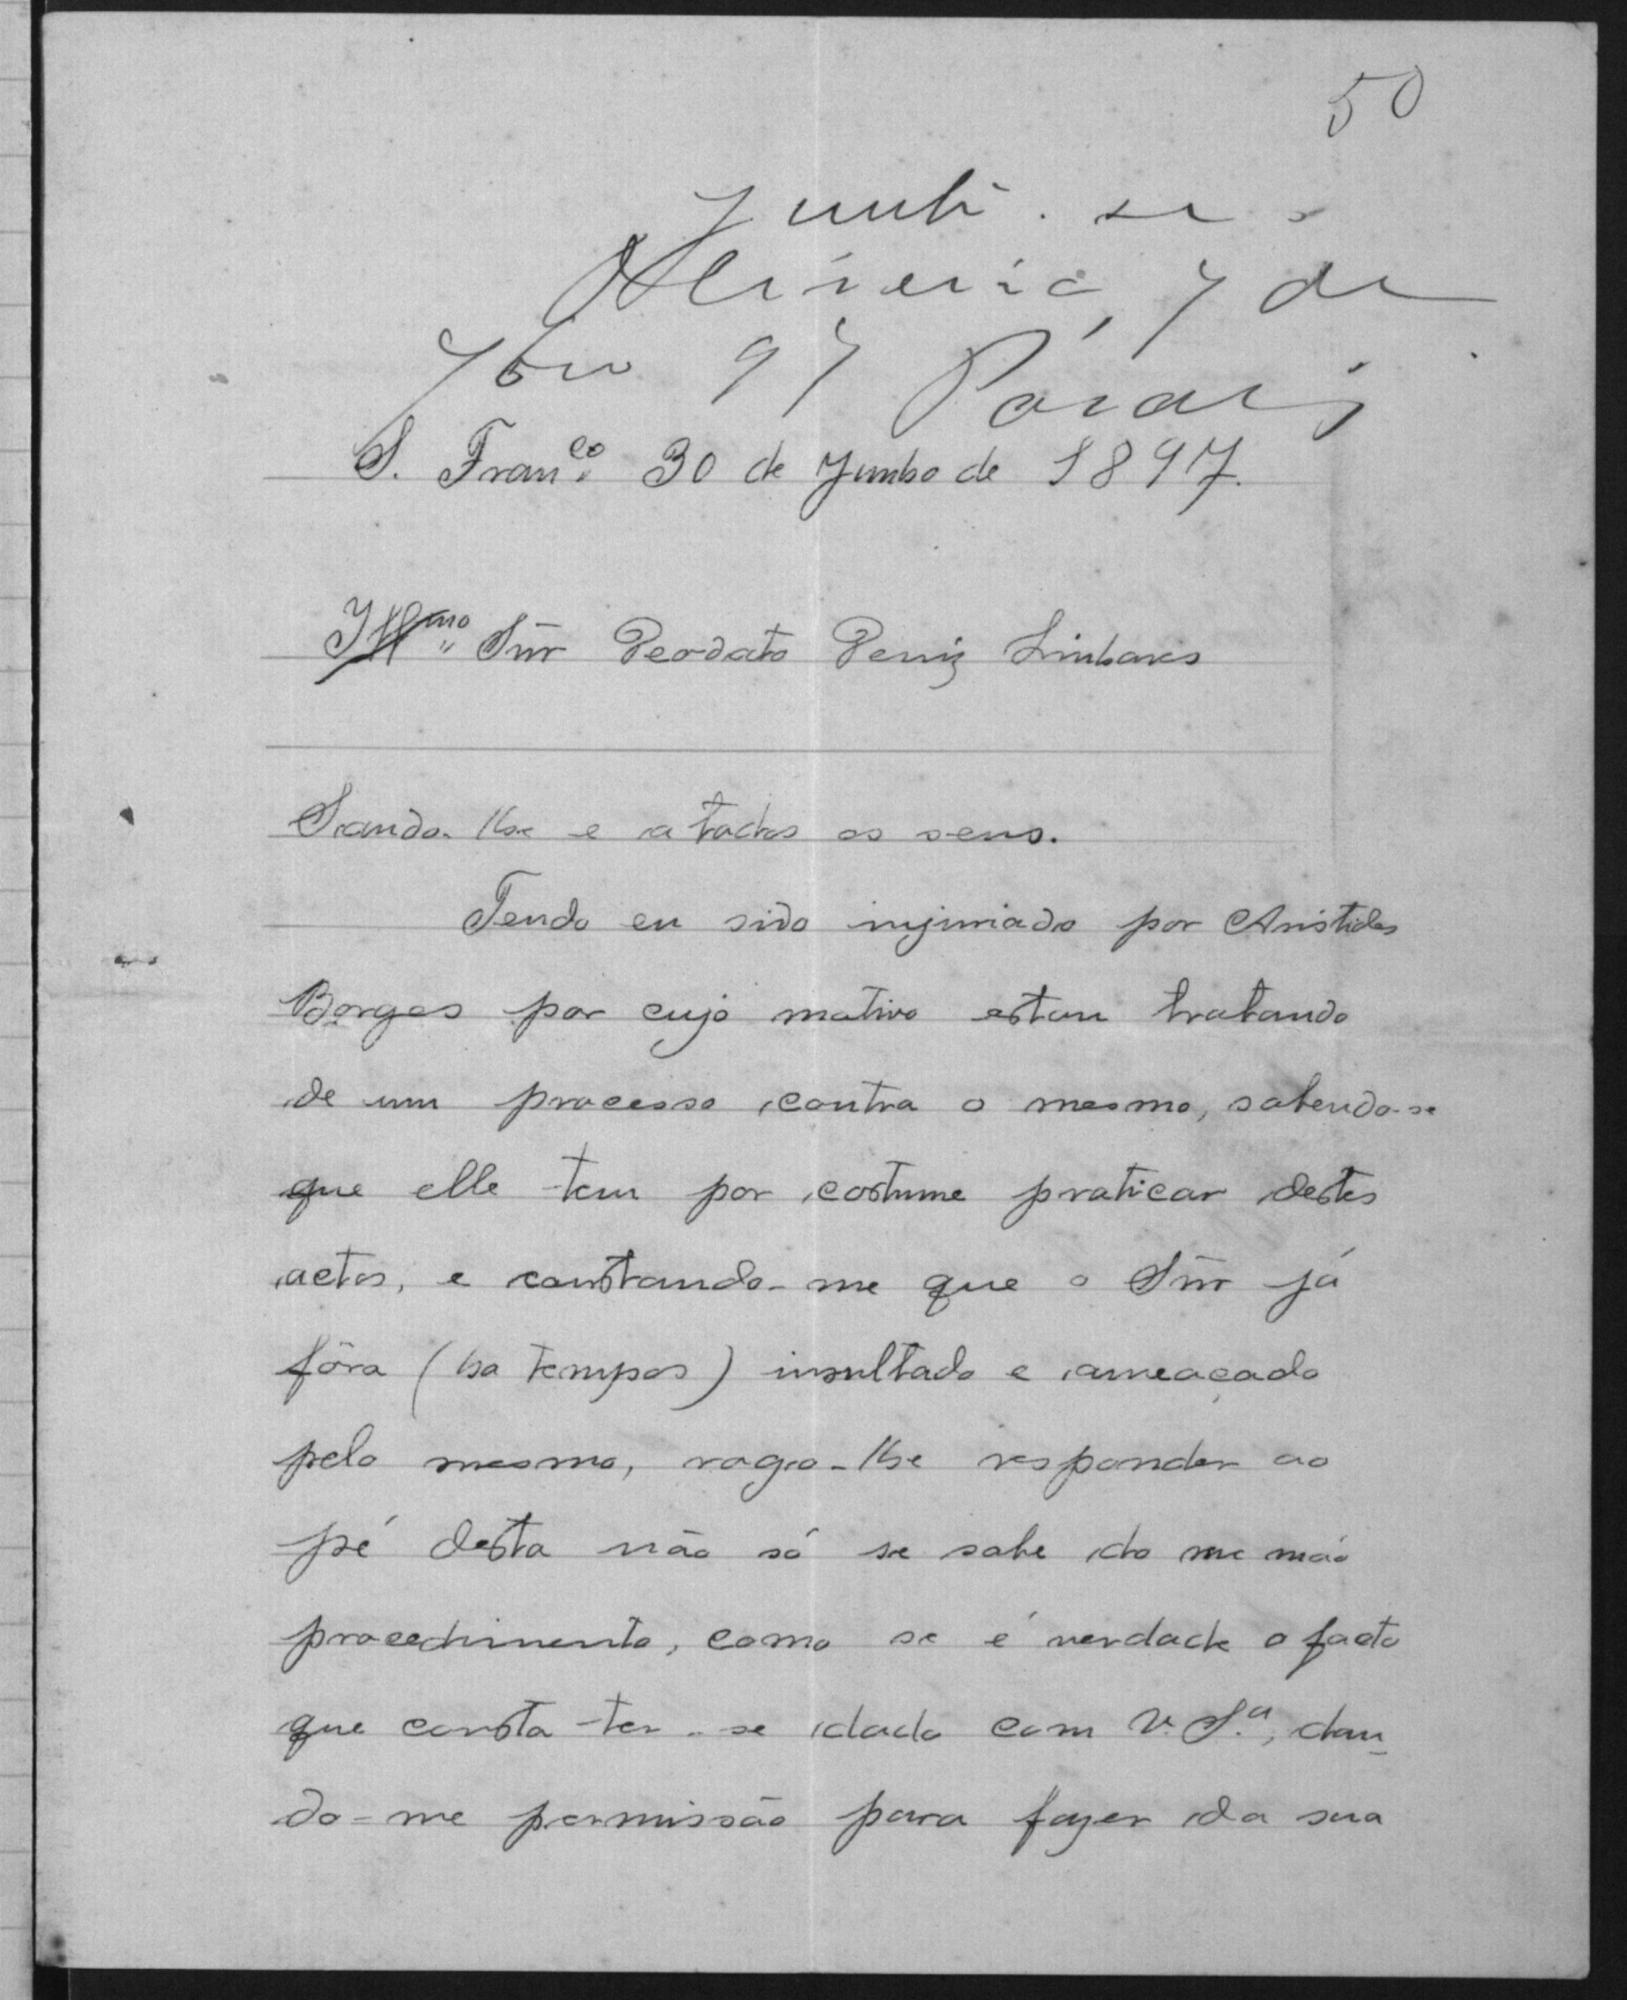 50
Junte-se
Oliveira, 7 de
7bro 97
S. Franco. 30 de Junho de 1897.
Illmo Snr Deodato Deniz Linhares
Saudo-lhe e a todos os seus.
Tendo eu sido injuriado por Aristides
Borges por cujo motivo estou tratando
de um processo contra o mesmo, sabendo-se
que elle tem por costume praticar destes
actos, e constando-me que o Snr já
fôra (ha tempos) insultado e ameaçado
pelo mesmo, rogo-lhe responder ao
pé desta não só se sabe do seu máo
procedimento, como se é verdade o facto
que consta ter-se dado com V. S.a, dan-
do-me permissão para fazer da sua